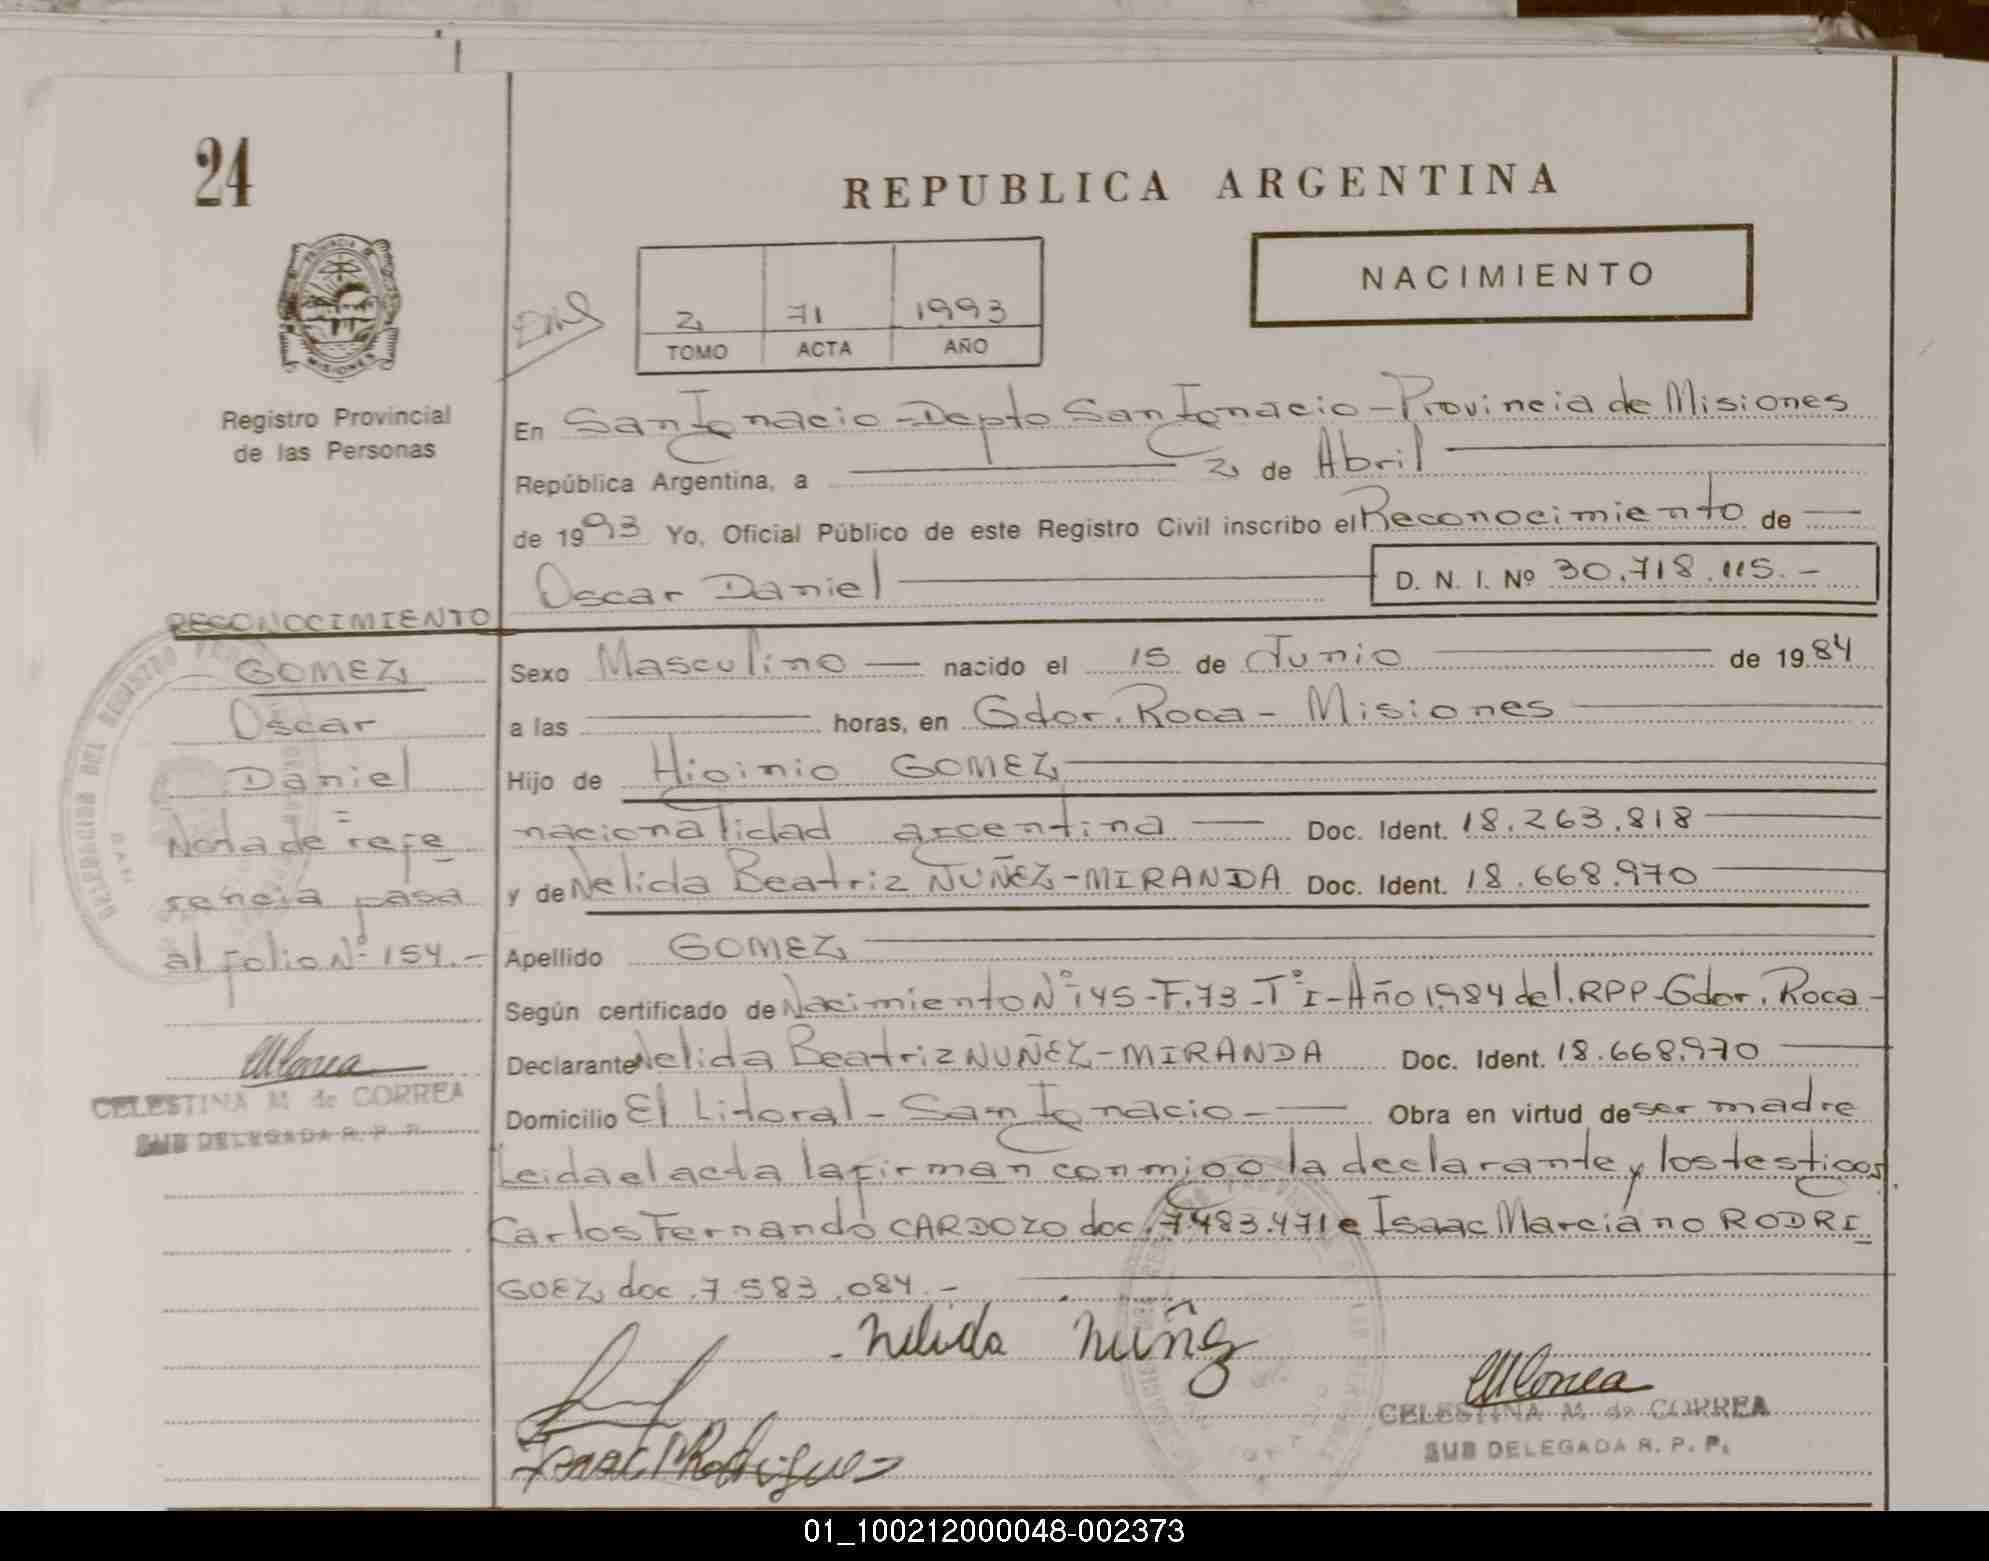 24
REPUBLICA ARGENTINA
PROVINCIA DE
MISIONES
NACIMIENTO
2 71 1993
TOMO ACTA AÑO
Registro Provincial
de las Personas
En San Ignacio - Depto San Ignacio - Provincia de Misiones
República Argentina, a 2 de Abril
de 1993 Yo, Oficial Público de este Registro Civil inscribo el Reconocimiento de
Oscar Daniel D. N. I. Nº 30.718.115.-
RECONOCIMIENTO
GOMEZ
Oscar
Daniel
Nota de refe
rencia pasa
al folio Nº 154.-
CELESTINA M de CORREA
SUB DELEGADA R. P. P.
Sexo Masculino nacido el 15 de Junio de 1984
a las horas, en Gdor. Roca - Misiones
Hijo de Higinio GOMEZ
nacionalidad argentina Doc. Ident. 18.263.818
y de Nelida Beatriz NUÑEZ-MIRANDA Doc. Ident. 18.668.970
Apellido GOMEZ
Según certificado de Nacimiento Nº 145-F.73-Tº I-Año 1984 del.RPP-Gdor. Roca-
Declarante Nelida Beatriz NUÑEZ-MIRANDA Doc. Ident. 18.668.970
Domicilio El Litoral - San Ignacio - Obra en virtud de ser madre
Leida el acta la firman conmigo la declarante y los testigos
Carlos Fernando CARDOZO doc.7.483.471 e Isaac Marciano RODRI
GUEZ doc.7.583.084.-
Nelida Nuñez
Isaac M Rodrigues
CELESTINA M de CORREA
SUB DELEGADA R. P. P.
01_100212000048-002373